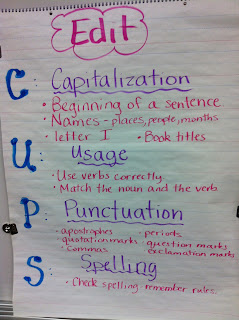 Edit
C: Capitalization
• Beginning of a sentence
• Names - places, people, months
• letter I • Book titles
U: Usage
• Use verbs correctly
• Match the noun and the verb
P: Punctuation
• apostrophes • periods
• quotation marks • question marks
• commas • exclamation marks
S: Spelling
• Check spelling remember rules.